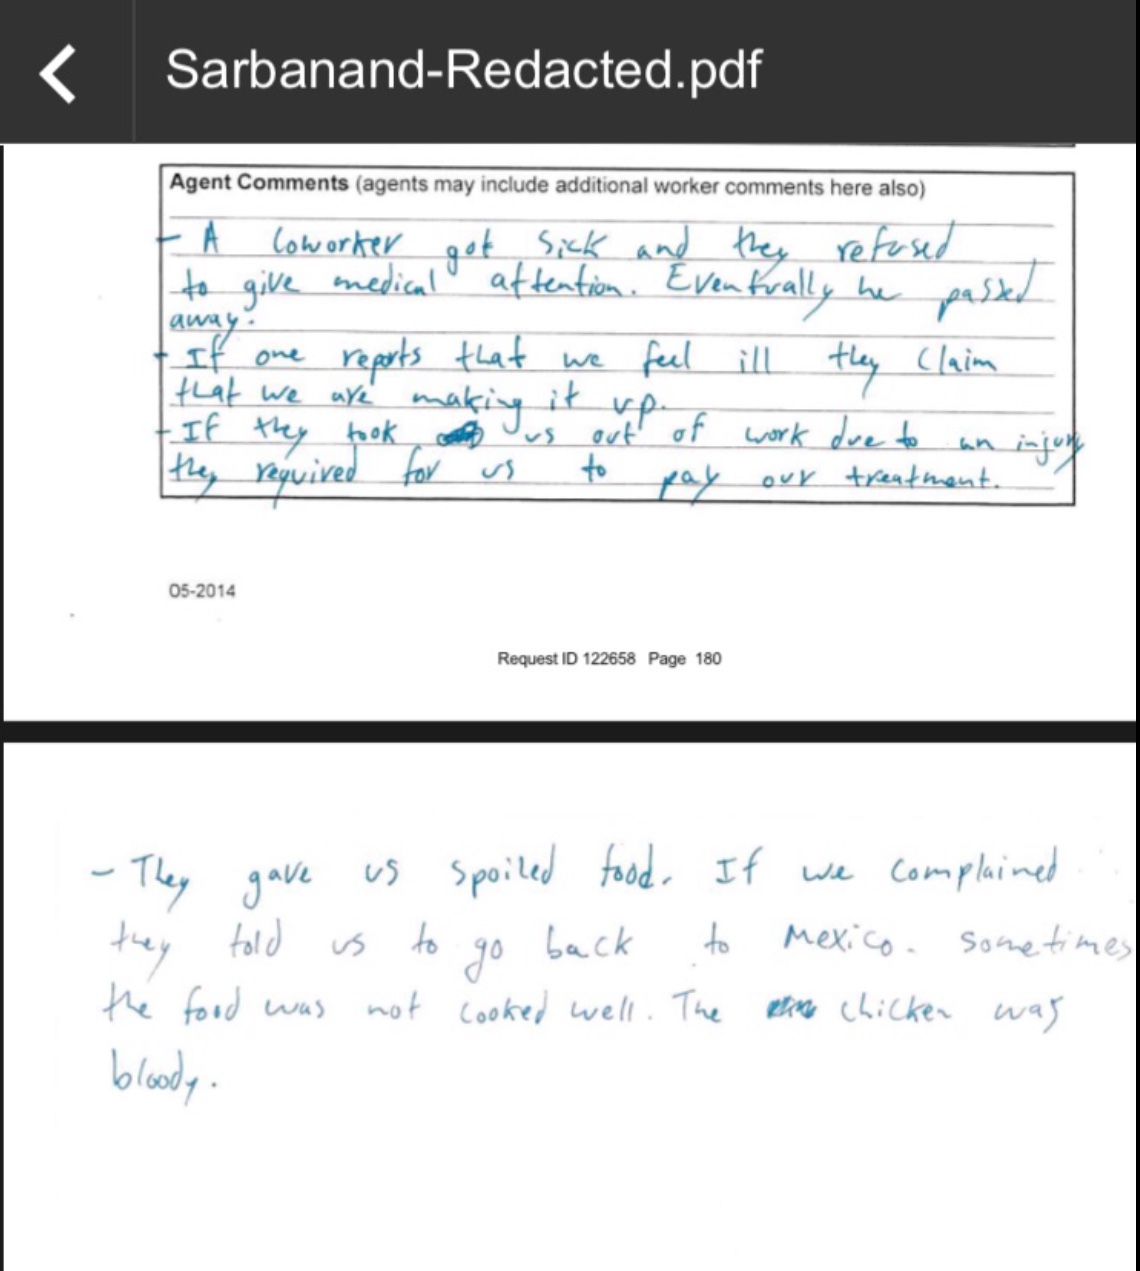 Sarbanand-Redacted.pdf
Agent Comments (agents may include additional worker comments here also)
- A coworker got sick and they refused
to give medical attention. Eventually he passed
away.
- If one reports that we feel ill they claim
that we are making it up.
- If they took us out of work due to an injury
they required for us to pay our treatment.
05-2014
Request ID 122658 Page 180
- They gave us spoiled food. If we complained
they told us to go back to Mexico. Sometimes
the food was not cooked well. The chicken was
bloody.